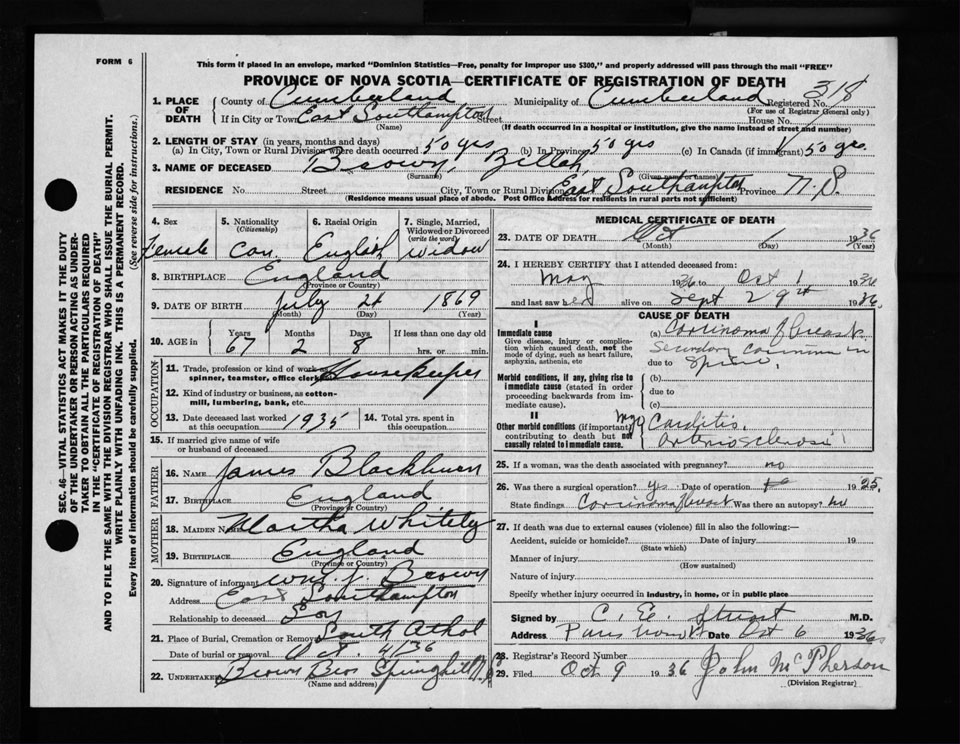 FORM 6
This form if placed in an envelope, marked "Dominion Statistics—Free, penalty for improper use $300," and properly addressed will pass through the mail "FREE"
PROVINCE OF NOVA SCOTIA—CERTIFICATE OF REGISTRATION OF DEATH
1. PLACE OF DEATH County of Cumberland Municipality of Cumberland Registered No. 318
(For use of Registrar General only)
If in City or Town East Southampton Street House No.
(Name) (If death occurred in a hospital or institution, give the name instead of street and number)
2. LENGTH OF STAY (in years, months and days)
(a) In City, Town or Rural Division where death occurred 50 yrs (b) In Province 50 yrs (c) In Canada (if immigrant) 50 yrs.
3. NAME OF DECEASED Brown,
(Surname) (Given name or names)
RESIDENCE No. Street City, Town or Rural Division East Southampton Province N.S.
(Residence means usual place of abode. Post Office Address for residents in rural parts not sufficient)
SEC. 46—VITAL STATISTICS ACT MAKES IT THE DUTY
OF THE UNDERTAKER OR PERSON ACTING AS UNDER-
TAKER TO OBTAIN ALL THE PARTICULARS REQUIRED
IN THE "CERTIFICATE OF REGISTRATION OF DEATH"
AND TO FILE THE SAME WITH THE DIVISION REGISTRAR WHO SHALL ISSUE THE BURIAL PERMIT.
WRITE PLAINLY WITH UNFADING INK. THIS IS A PERMANENT RECORD.
Every item of information should be carefully supplied. (See reverse side for instructions.)
4. Sex 5. Nationality 6. Racial Origin 7. Single, Married,
(Citizenship) Widowed or Divorced
(write the word)
Female Can. English Widow
8. BIRTHPLACE England
(Province or Country)
9. DATE OF BIRTH July 24 1869
(Month) (Day) (Year)
10. AGE in Years Months Days If less than one day old
67 2 8 hrs. or min.
OCCUPATION
11. Trade, profession or kind of work as
spinner, teamster, office clerk Housekeeper
12. Kind of industry or business, as cotton-
mill, lumbering, bank, etc.
13. Date deceased last worked at this occupation 1935 14. Total yrs. spent in this occupation
15. If married give name of wife
or husband of deceased
FATHER
16. NAME James Blackburn
17. BIRTHPLACE England
(Province or Country)
MOTHER
18. MAIDEN NAME Martha Whitely
19. BIRTHPLACE England
(Province or Country)
20. Signature of informant Wm. J. Brown
Address East Southampton
Relationship to deceased Son
21. Place of Burial, Cremation or Removal South Athol
Date of burial or removal Oct. 4/36
22. UNDERTAKER Brown Bros Springhill N.S
(Name and address)
MEDICAL CERTIFICATE OF DEATH
23. DATE OF DEATH Oct 1 1936
(Month) (Day) (Year)
24. I HEREBY CERTIFY that I attended deceased from:
May 1936 to Oct 1 1936
and last saw her alive on Sept 29th 1936
CAUSE OF DEATH
I
Immediate cause
Give disease, injury or complica-
tion which caused death, not the
mode of dying, such as heart failure,
asphyxia, asthenia, etc
(a) Carcinoma of breast
Secondary carcinoma in
due to Spine.
Morbid conditions, if any, giving rise to
immediate cause (stated in order
proceeding backwards from im-
mediate cause).
(b)
due to
(c)
II
Other morbid conditions (if important)
contributing to death but not
causally related to immediate cause.
Myo Carditis.
arteriosclerosis
25. If a woman, was the death associated with pregnancy? no
26. Was there a surgical operation? yes Date of operation 1935.
State findings Carcinoma of breast Was there an autopsy? no
27. If death was due to external causes (violence) fill in also the following:—
Accident, suicide or homicide? Date of injury 19
(State which)
Manner of injury
(How sustained)
Nature of injury
Specify whether injury occurred in industry, in home, or in public place
Signed by C. E. M.D.
Address Parrsboro Date Oct 6 1936
28. Registrar's Record Number
29. Filed Oct 9 1936 John McPherson
(Division Registrar)